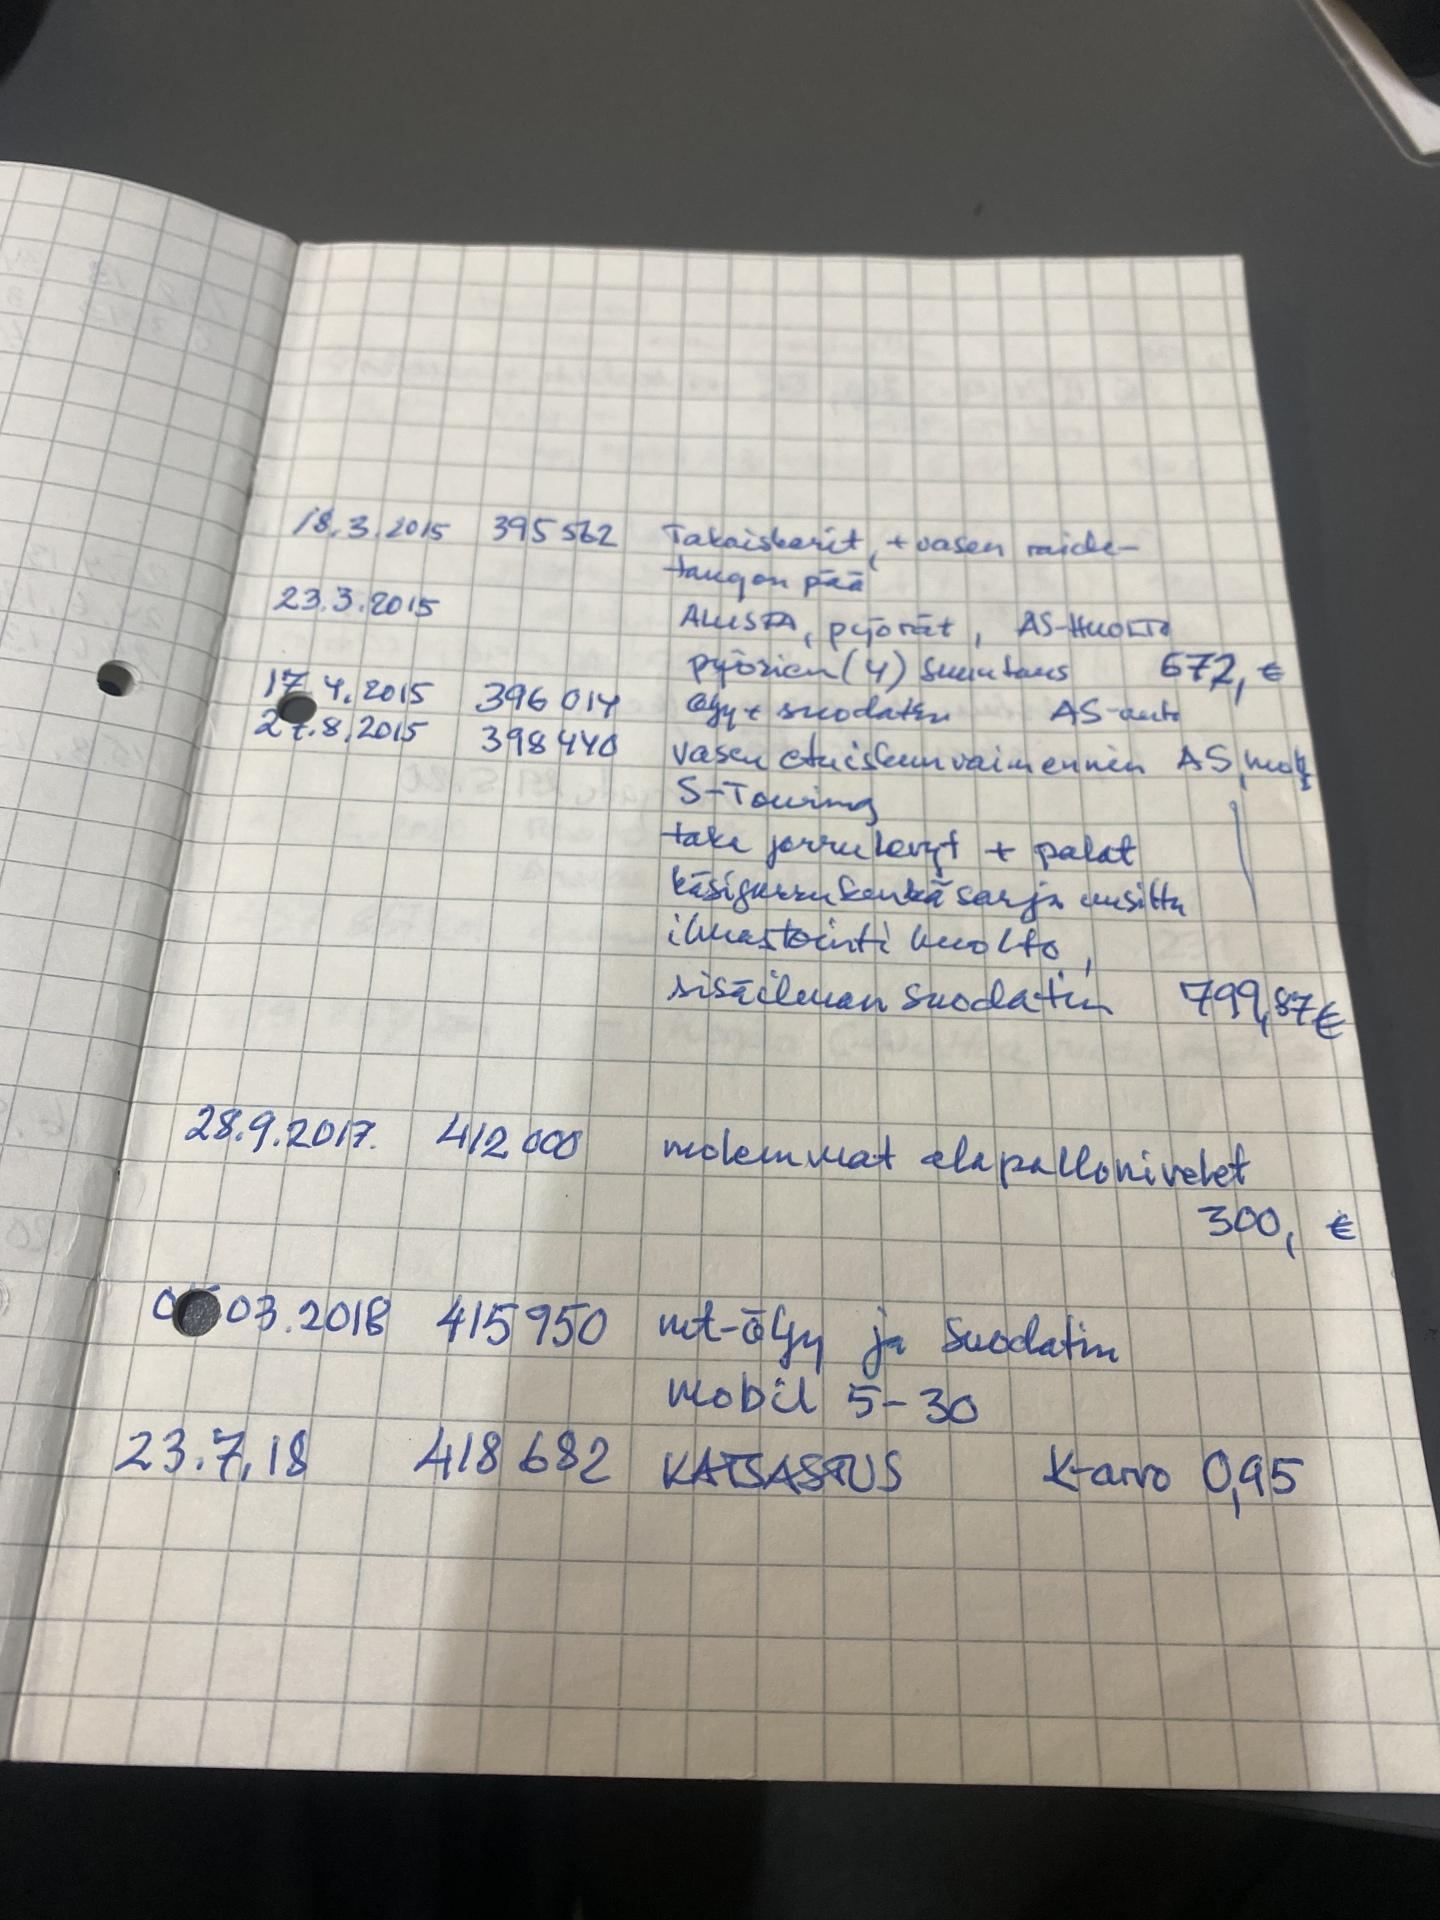 18.3.2015 395 562 Takaiskarit, + vasen raide-
tangon pää
23.3.2015 ALUSTA, pyörät, AS-HUOLTO
pyörien (4) suuntaus 672, €
17.4.2015 396 014 öljy + suodatin AS-auto
27.8.2015 398 440 vasen etuiskunvaimennin AS,
S-Touring
taka jarrulevyt + palat
käsijarrukenkä sarja uusittu
ilmastointi huolto,
sisäilman suodatin 799,87€
28.9.2017. 412 000 molemmat alapallonivelet
300, €
03.2018 415 950 mt-öljy ja suodatin
mobil 5-30
23.7.18 418 682 KATSASTUS K-arvo 0,95